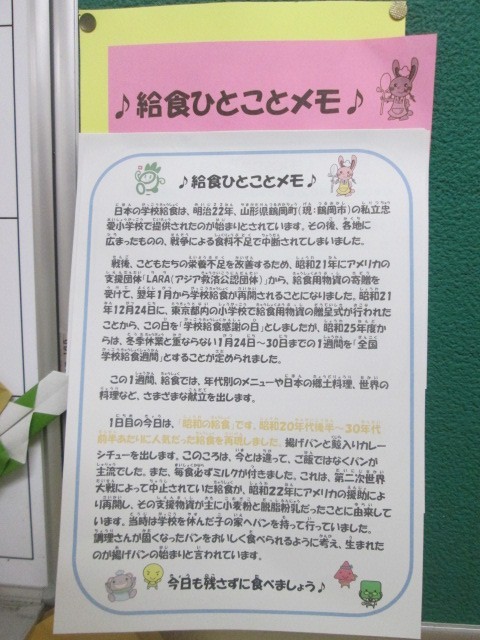 ♪給食ひとことメモ♪
♪給食ひとことメモ♪
日本の学校給食は、明治22年、山形県鶴岡町（現：鶴岡市）の私立忠
愛小学校で提供されたのが始まりとされています。その後、各地に
広まったものの、戦争による食料不足で中断されてしまいました。
戦後、こどもたちの栄養不足を改善するため、昭和21年にアメリカの
支援団体「LARA（アジア救済公認団体）」から、給食用物資の寄贈を
受けて、翌年1月から学校給食が再開されることになりました。昭和21
年12月24日に、東京都内の小学校で給食用物資の贈呈式が行われた
ことから、この日を「学校給食感謝の日」としましたが、昭和25年度か
らは、冬季休業と重ならない1月24日～30日までの1週間を「全国
学校給食週間」とすることが定められました。
この1週間、給食では、年代別のメニューや日本の郷土料理、世界の
料理など、さまざまな献立を出します。
1日目の今日は、「昭和の給食」です。昭和20年代後半～30年代
前半あたりに人気だった給食を再現しました。揚げパンと鯨入りカレー
シチューを出します。このころは、今とは違って、ご飯ではなくパンが
主流でした。また、毎食必ずミルクが付きました。これは、第二次世界
大戦によって中止されていた給食が、昭和22年にアメリカの援助によ
り再開し、その支援物資が主に小麦粉と脱脂粉乳だったことに由来して
います。当時は学校を休んだ子の家へパンを持って行っていました。
調理さんが固くなったパンをおいしく食べられるように考え、生まれた
のが揚げパンの始まりと言われています。
今日も残さずに食べましょう♪